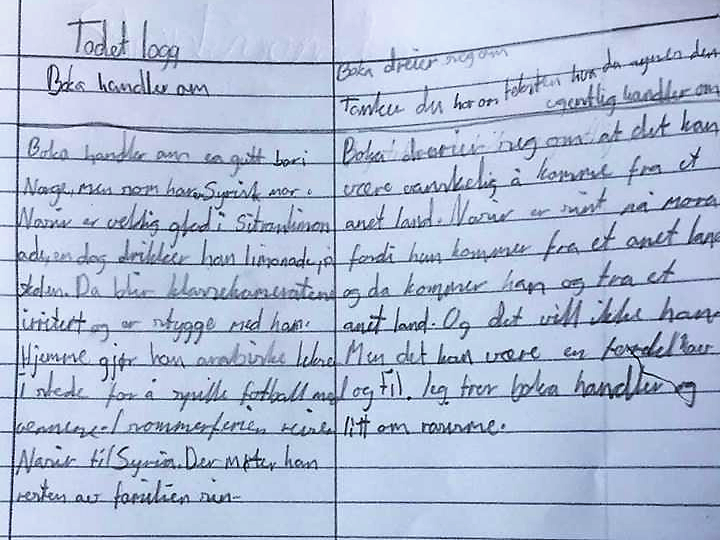 Todet logg
Boka handler om
Boka handler om en gutt bor i
Norge, men som har en Syrisk mor.
Narin er veldig glad i Sitronlimon
ade, en dag drikker han limonade på
skolen. Da blir klassekameratene
irritert og er stygge med ham.
Hjemme gjør han arabiske lekser
I stede for å spille fotball med
vennene. I sommerferien reiser
Narin til Syria. Der møter han
resten av familien sin-
Boka dreier seg om
Tanker du har om teksten hva du mener den
egentlig handler om
Boka dreier seg om at det kan
være vanskelig å komme fra et
anet land. Narin er sint på mora
fordi hun kommer fra et anet land
og da kommer han og fra et
anet land. Og det vill ikke han
Men det kan være en fordel av
og til. Jeg tror boka handler og
litt om rasisme.